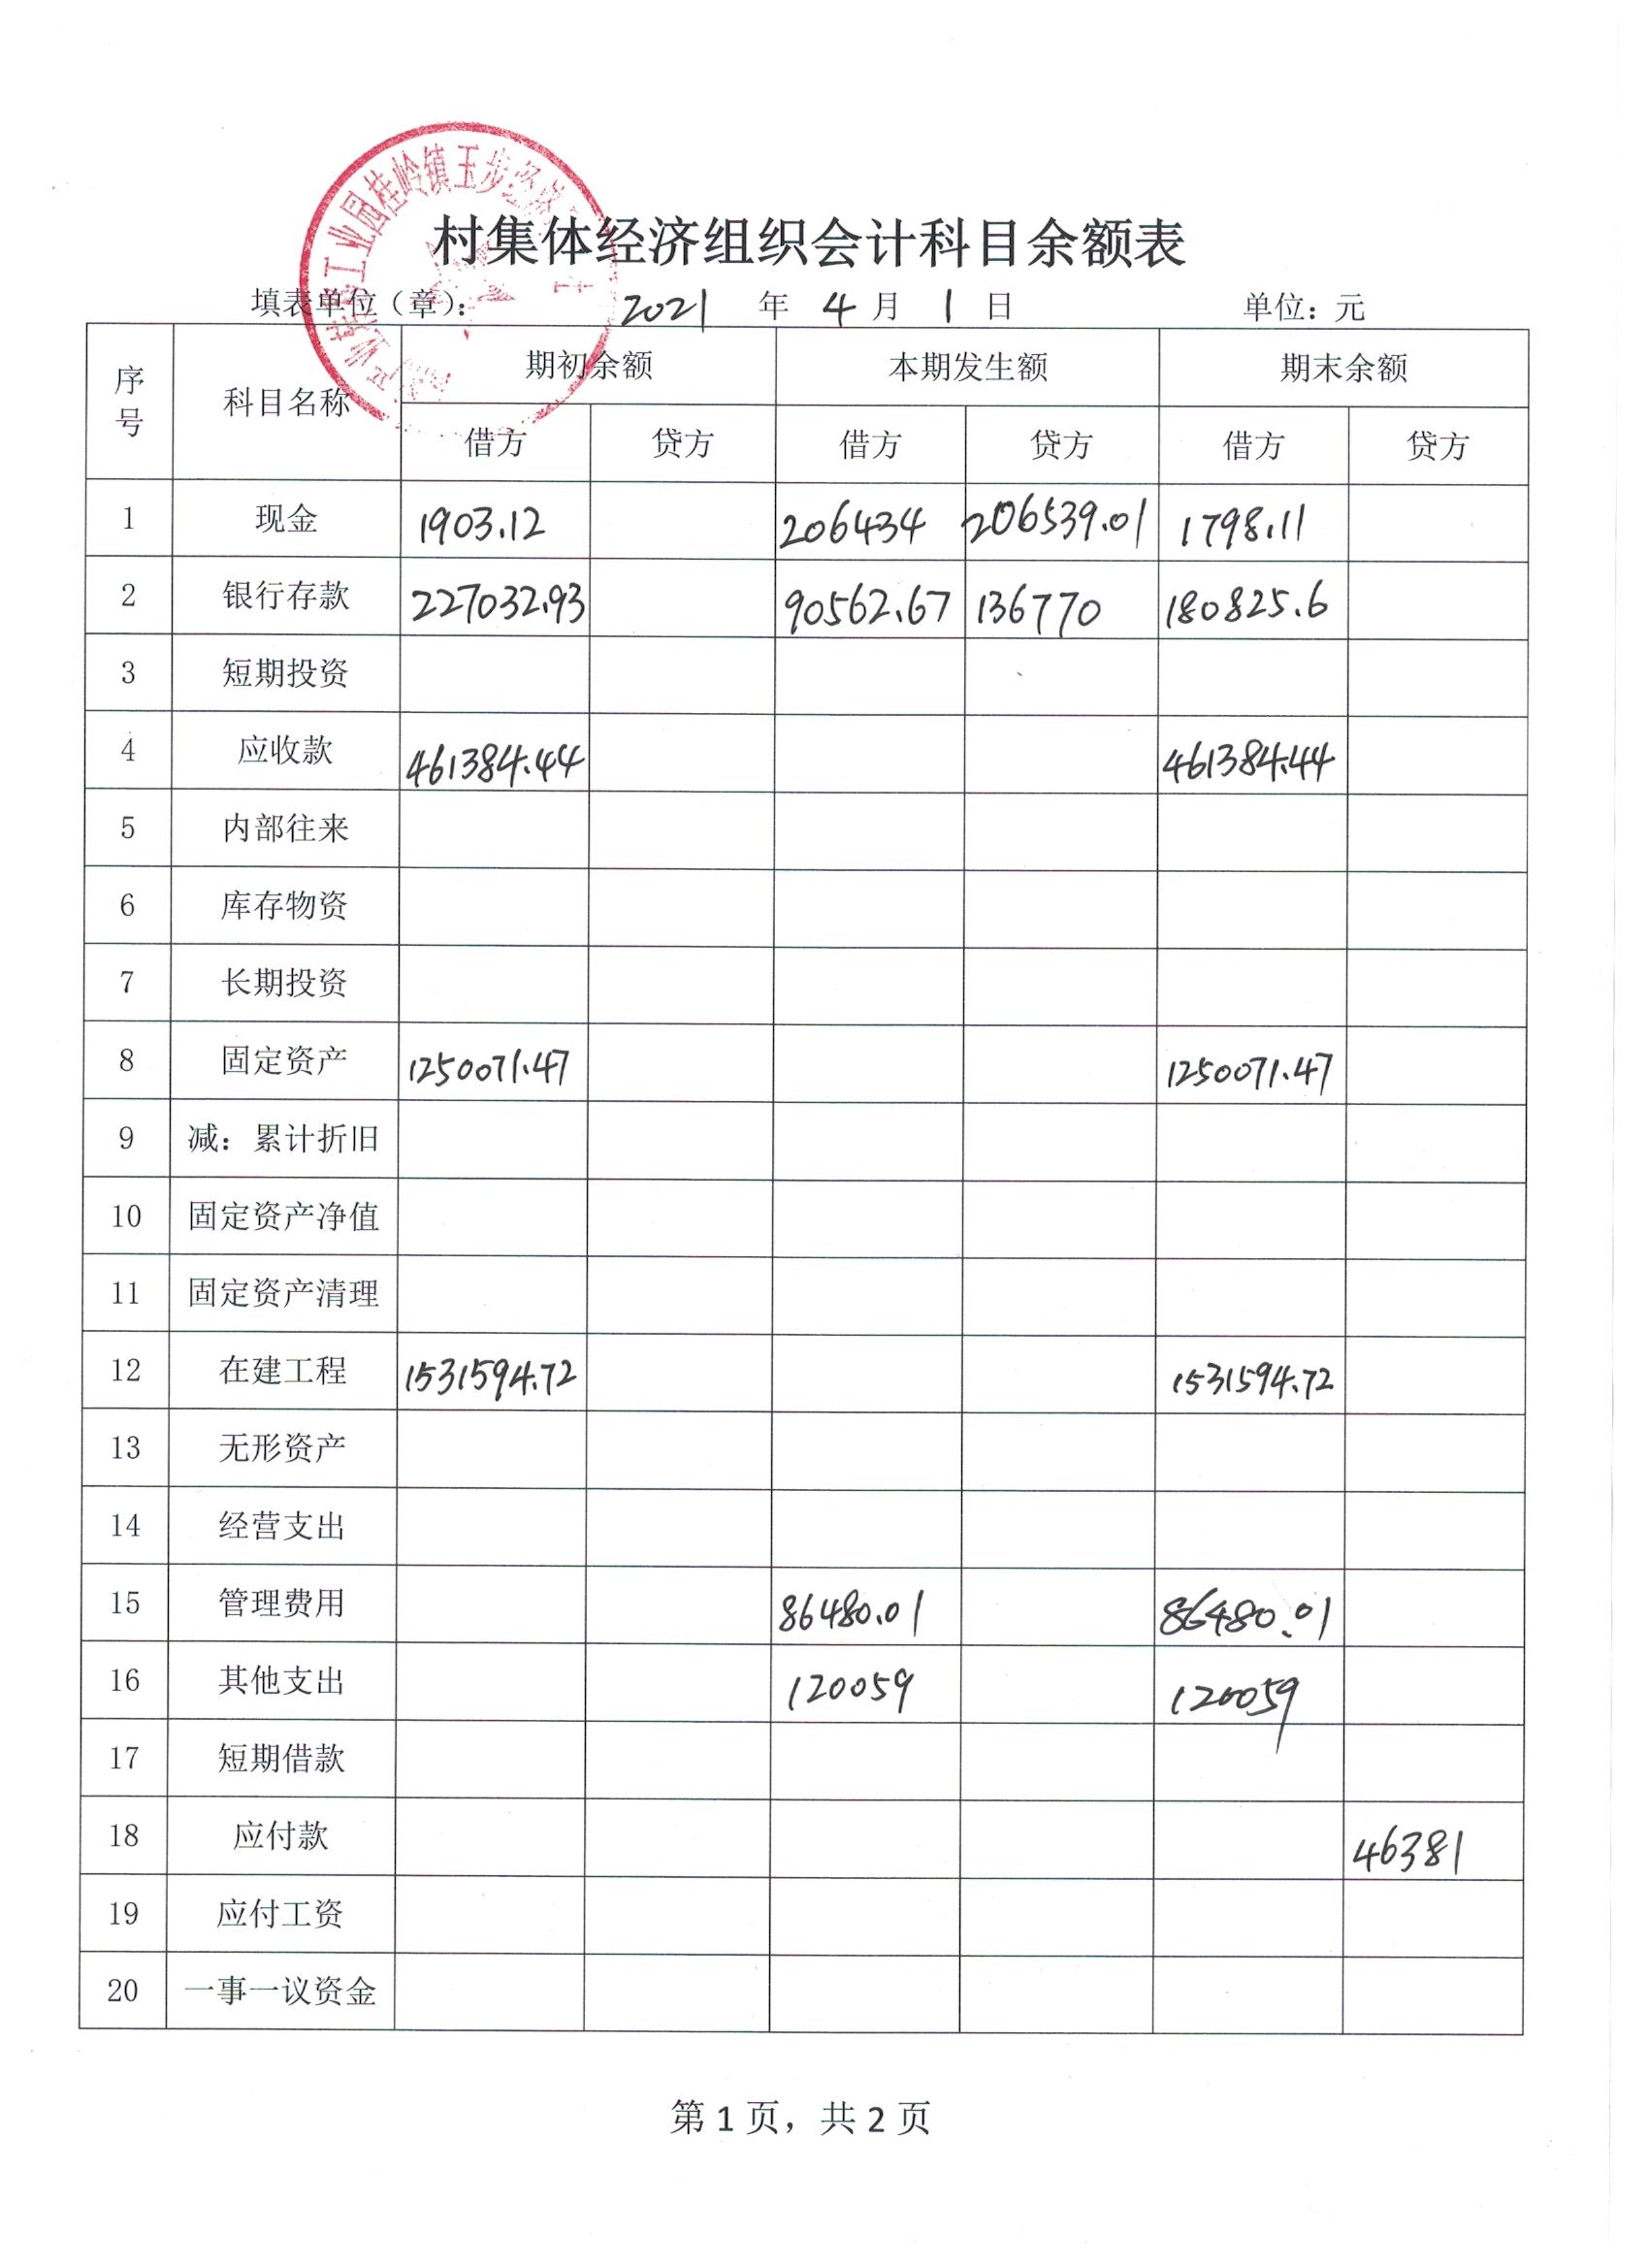 工业园桂岭镇玉步
村集体经济组织会计科目余额表
填表单位（章）： 2021 年 4 月 1 日 单位：元
序号 科目名称 期初余额 本期发生额 期末余额
借方 贷方 借方 贷方 借方 贷方
1 现金 1903.12 206434 206539.01 1798.11
2 银行存款 227032.93 90562.67 136770 180825.6
3 短期投资
4 应收款 461384.44 461384.44
5 内部往来
6 库存物资
7 长期投资
8 固定资产 1250071.47 1250071.47
9 减：累计折旧
10 固定资产净值
11 固定资产清理
12 在建工程 1531594.72 1531594.72
13 无形资产
14 经营支出
15 管理费用 86480.01 86480.01
16 其他支出 120059 120059
17 短期借款
18 应付款 46381
19 应付工资
20 一事一议资金
第 1 页，共 2 页